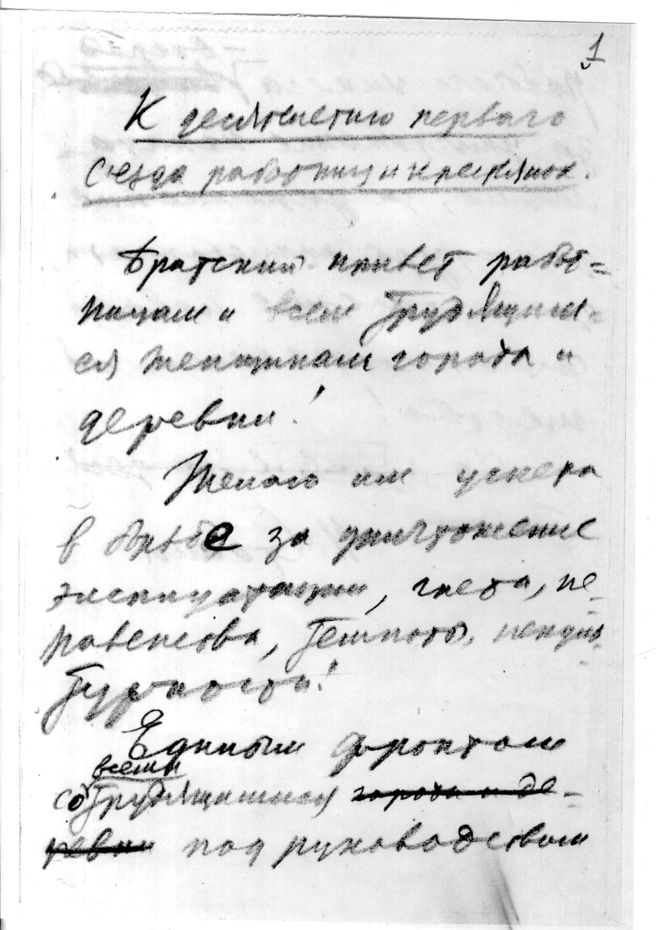 1
К десятилетию первого
съезда работниц и крестьянок.
Братский привет работ=
ницам и всем трудящим=
ся женщинам города и
деревни!
Желаю им успеха
в борьбе за уничтожение
эксплуатации, гнета, не-
равенства, темноты, некуль-
турности!
Единым фронтом
со всеми трудящимися города и де-
ревни под руководством